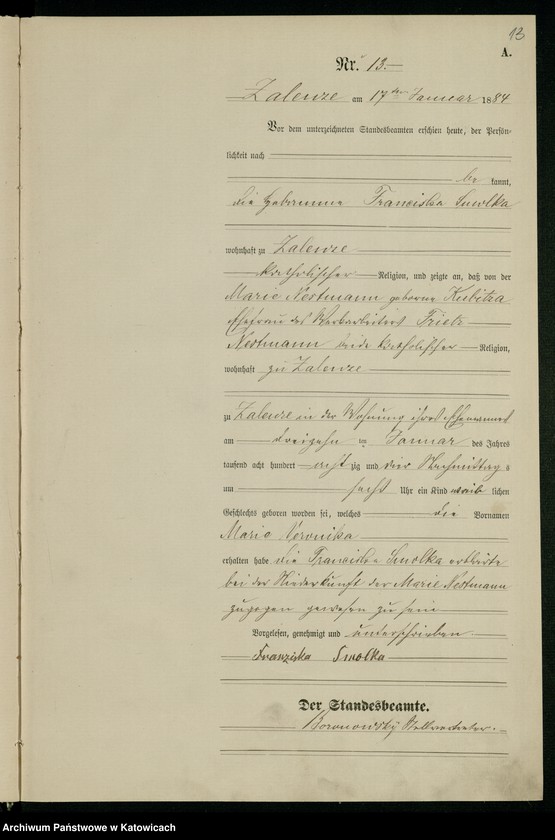 13
A.
Nr. 13.
Zalenze am 17ten Januar 1884
Vor dem unterzeichneten Standesbeamten erschien heute, der Persön-
lichkeit nach
be kannt,
die Hebamme Franciska Smolka
wohnhaft zu Zalenze
katholischer Religion, und zeigte an, daß von der
Marie Nestmann geborne Kubitza
Ehefrau des Werkarbeiters
Nestmann beide katholischer Religion,
wohnhaft zu Zalenze
zu Zalenze in der Wohnung ihres Ehemannes
am dreizehn ten Januar des Jahres
tausend acht hundert acht zig und vier Nachmittag s
um sechs Uhr ein Kind weib lichen
Geschlechts geboren worden sei, welches die Vornamen
Marie Veronika
erhalten habe die Franciska Smolka erklärte
bei der Niederkunft der Marie Nestmann
zugegen gewesen zu sein
Vorgelesen, genehmigt und unterschrieben
Franziska Smolka
Der Standesbeamte.
Boronowsky Stellvertreter.
Archiwum Państwowe w Katowicach